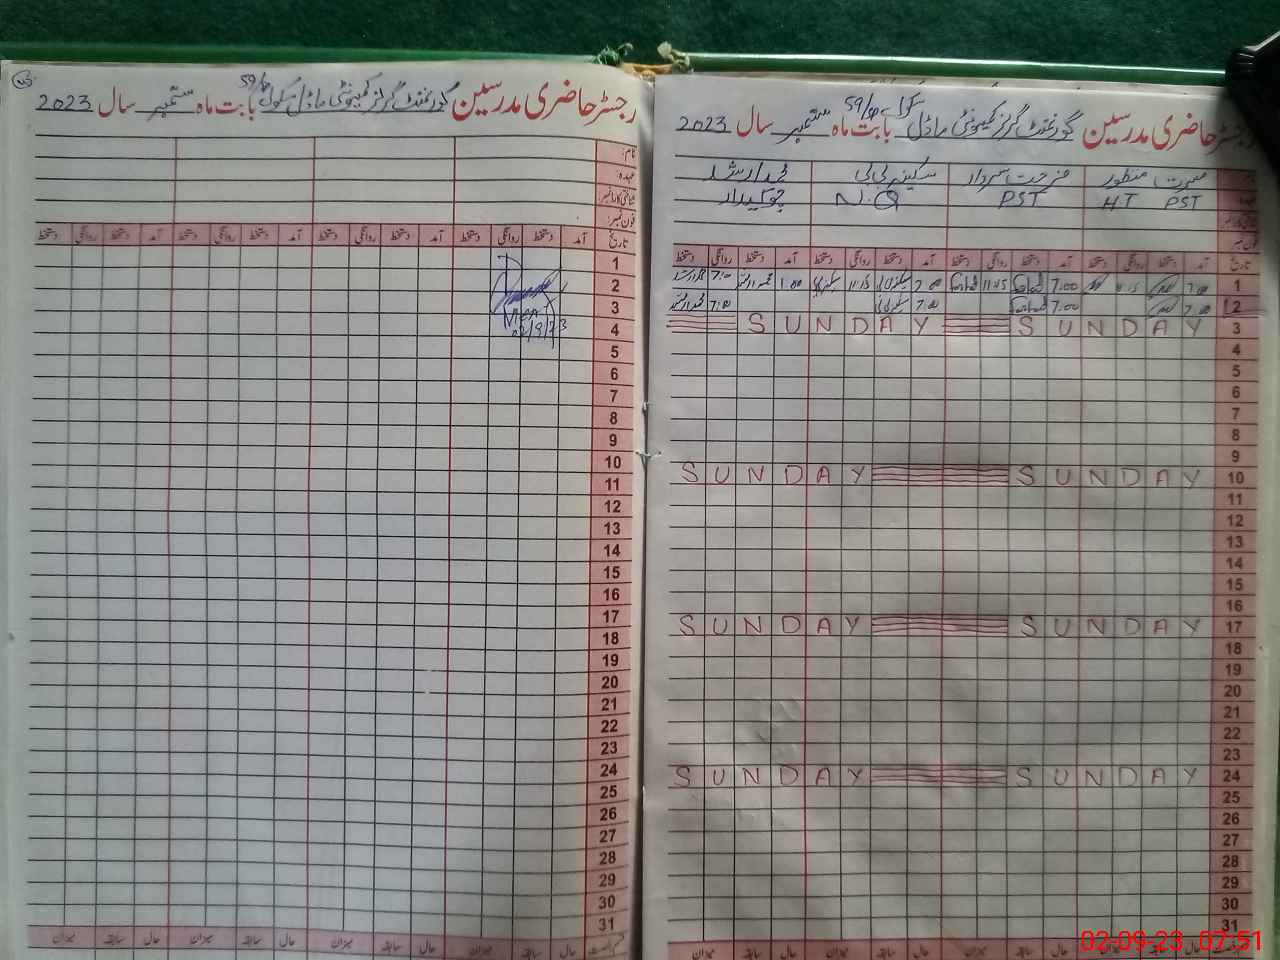 رجسٹر حاضری مدرسین گورنمنٹ گرلز کمیونٹی ماڈل سکول 59/ بابت ماہ ستمبر سال 2023
نام:
عہدہ:
شناختی کارڈ نمبر:
فون نمبر:
تاریخ آمد دستخط روانگی دستخط آمد دستخط روانگی دستخط آمد دستخط روانگی دستخط آمد دستخط روانگی دستخط
1
2
3
4
5
6
7
8
9
10
11
12
13
14
15
16
17
18
19
20
21
22
23
24
25
26
27
28
29
30
31
حال سابقہ میزان حال سابقہ میزان حال سابقہ میزان حال سابقہ میزان
رجسٹر حاضری مدرسین گورنمنٹ گرلز کمیونٹی ماڈل سکول 59/ بابت ماہ ستمبر سال 2023
مسرت منظور فرحت سردار سکینہ بی بی محمد ارشد
PST HT PST N.Q چوکیدار
فون نمبر
تاریخ آمد دستخط روانگی دستخط آمد دستخط روانگی دستخط آمد دستخط روانگی دستخط آمد دستخط روانگی دستخط
1 7:00 11:15 7:00 11:15 7:00 11:15 1:00 7:00
2 7:00 7:00 7:00 7:00
3 SUNDAY SUNDAY
4
5
6
7
8
9
10 SUNDAY SUNDAY
11
12
13
14
15
16
17 SUNDAY SUNDAY
18
19
20
21
22
23
24 SUNDAY SUNDAY
25
26
27
28
29
30
31
حال سابقہ میزان حال سابقہ میزان حال سابقہ میزان حال سابقہ میزان
02-09-23 07:51